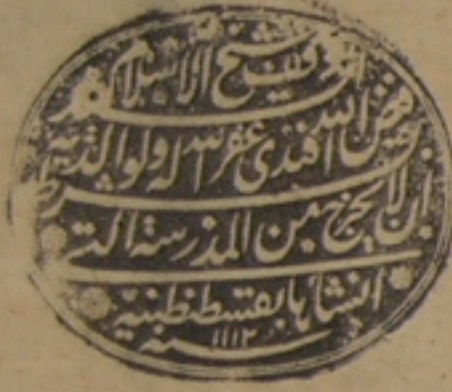 وقف شيخ الاسلام
فيض الله افندى غفر الله له ولوالديه
بشرط ان لا يخرج من المدرسة التى
انشأها بقسطنطنية
سنه ١١١٢